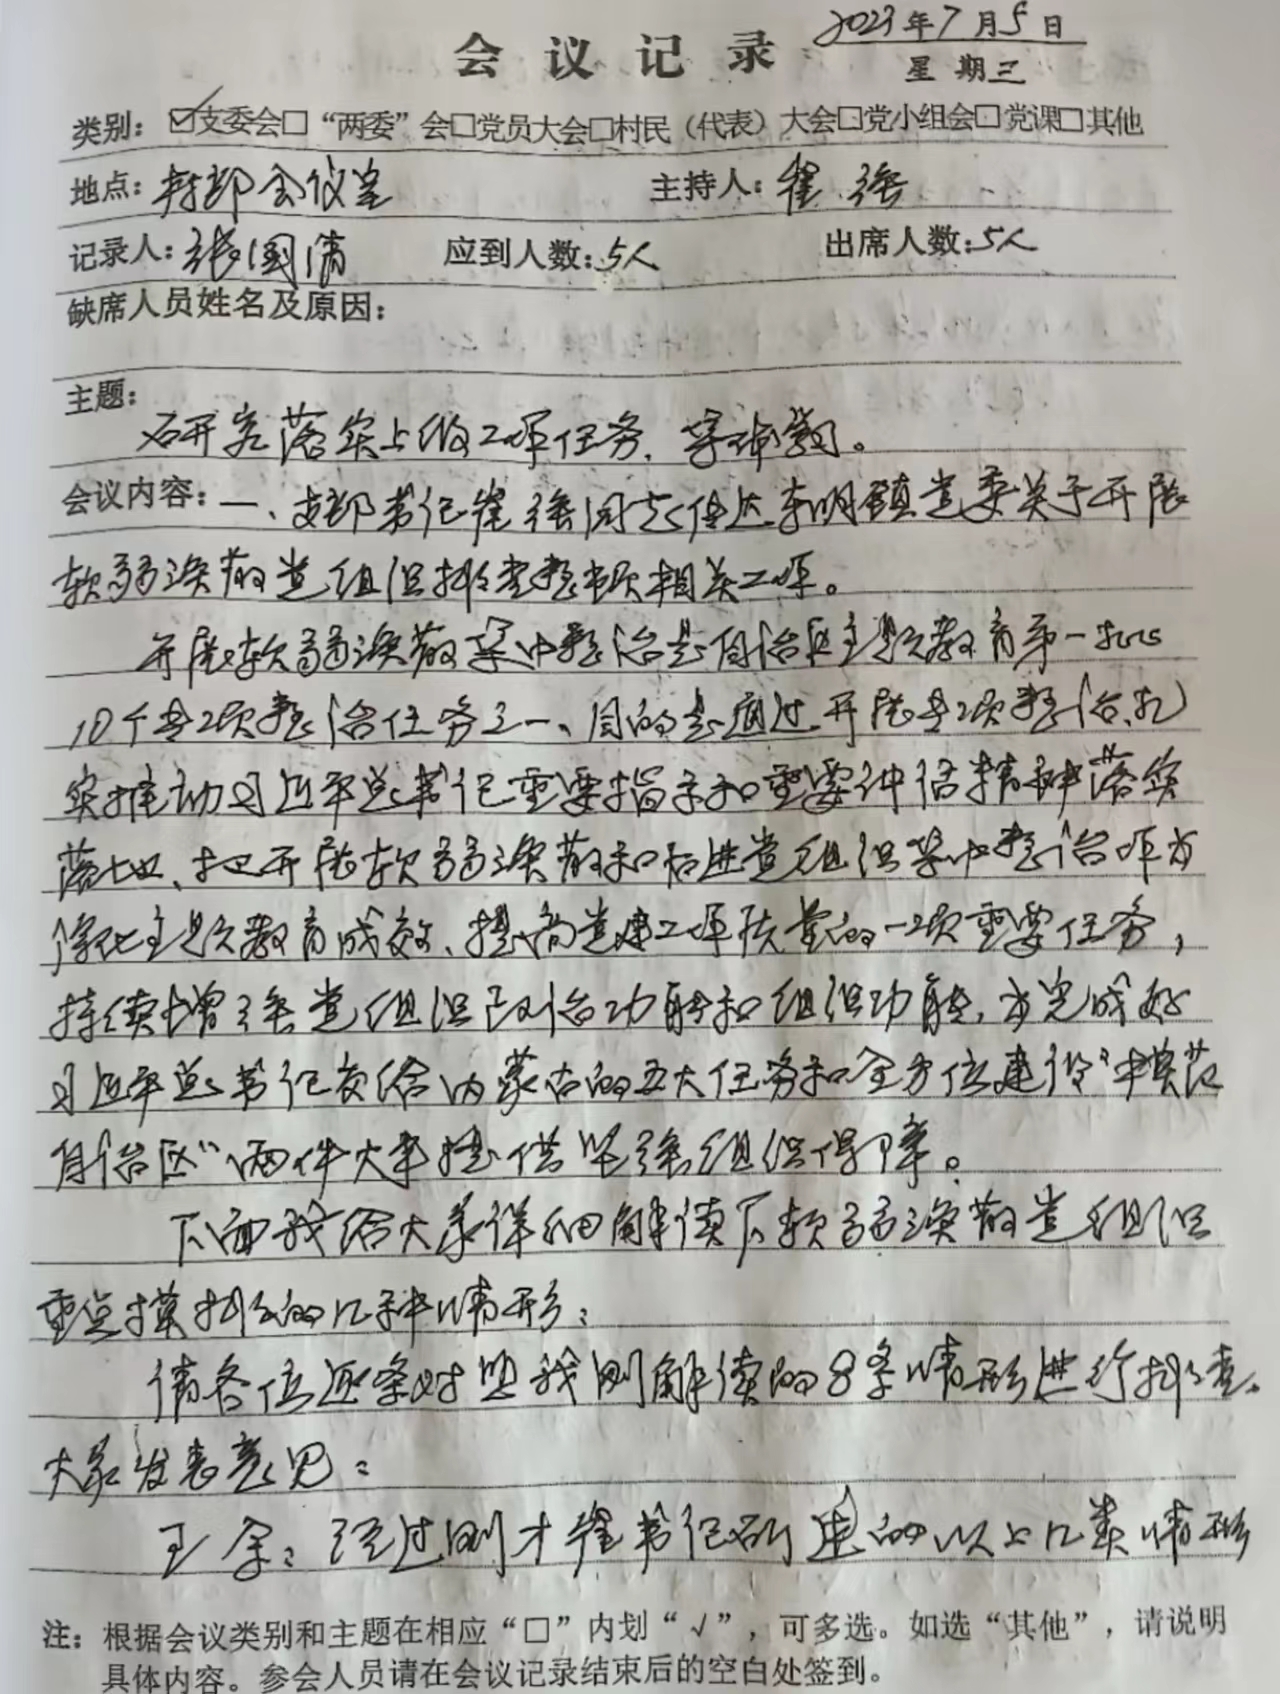 2023年7月5日
会议记录
星期三
类别：☑支委会□“两委”会□党员大会□村民（代表）大会□党小组会□党课□其他
地点：村部会议室 主持人：崔强
记录人：张国清 应到人数：5人 出席人数：5人
缺席人员姓名及原因：
主题：
研究落实上级工作任务、等课题。
会议内容：一、支部书记崔强同志传达东明镇党委关于开展
软弱涣散党组织排查整顿相关工作。
开展软弱涣散集中整治是自治区主题教育第一批
10个专项整治任务之一、目的是通过开展专项整治、扎
实推动习近平总书记重要指示和重要讲话精神落实
落地、把开展软弱涣散和后进党组织集中整治作为
深化主题教育成效、提高党建工作质量的一项重要任务，
持续增强党组织政治功能和组织功能，为完成好
习近平总书记交给内蒙古的五大任务和全方位建设“模范
自治区”两件大事提供坚强组织保障。
下面我给大家详细解读下软弱涣散党组织
重点摸排的几种情形：
请各位逐条对照我刚解读的8条情形进行排查。
大家发表意见：
王金：经过刚才崔书记所述的以上几类情形
注：根据会议类别和主题在相应“□”内划“√”，可多选。如选“其他”，请说明
具体内容。参会人员请在会议记录结束后的空白处签到。